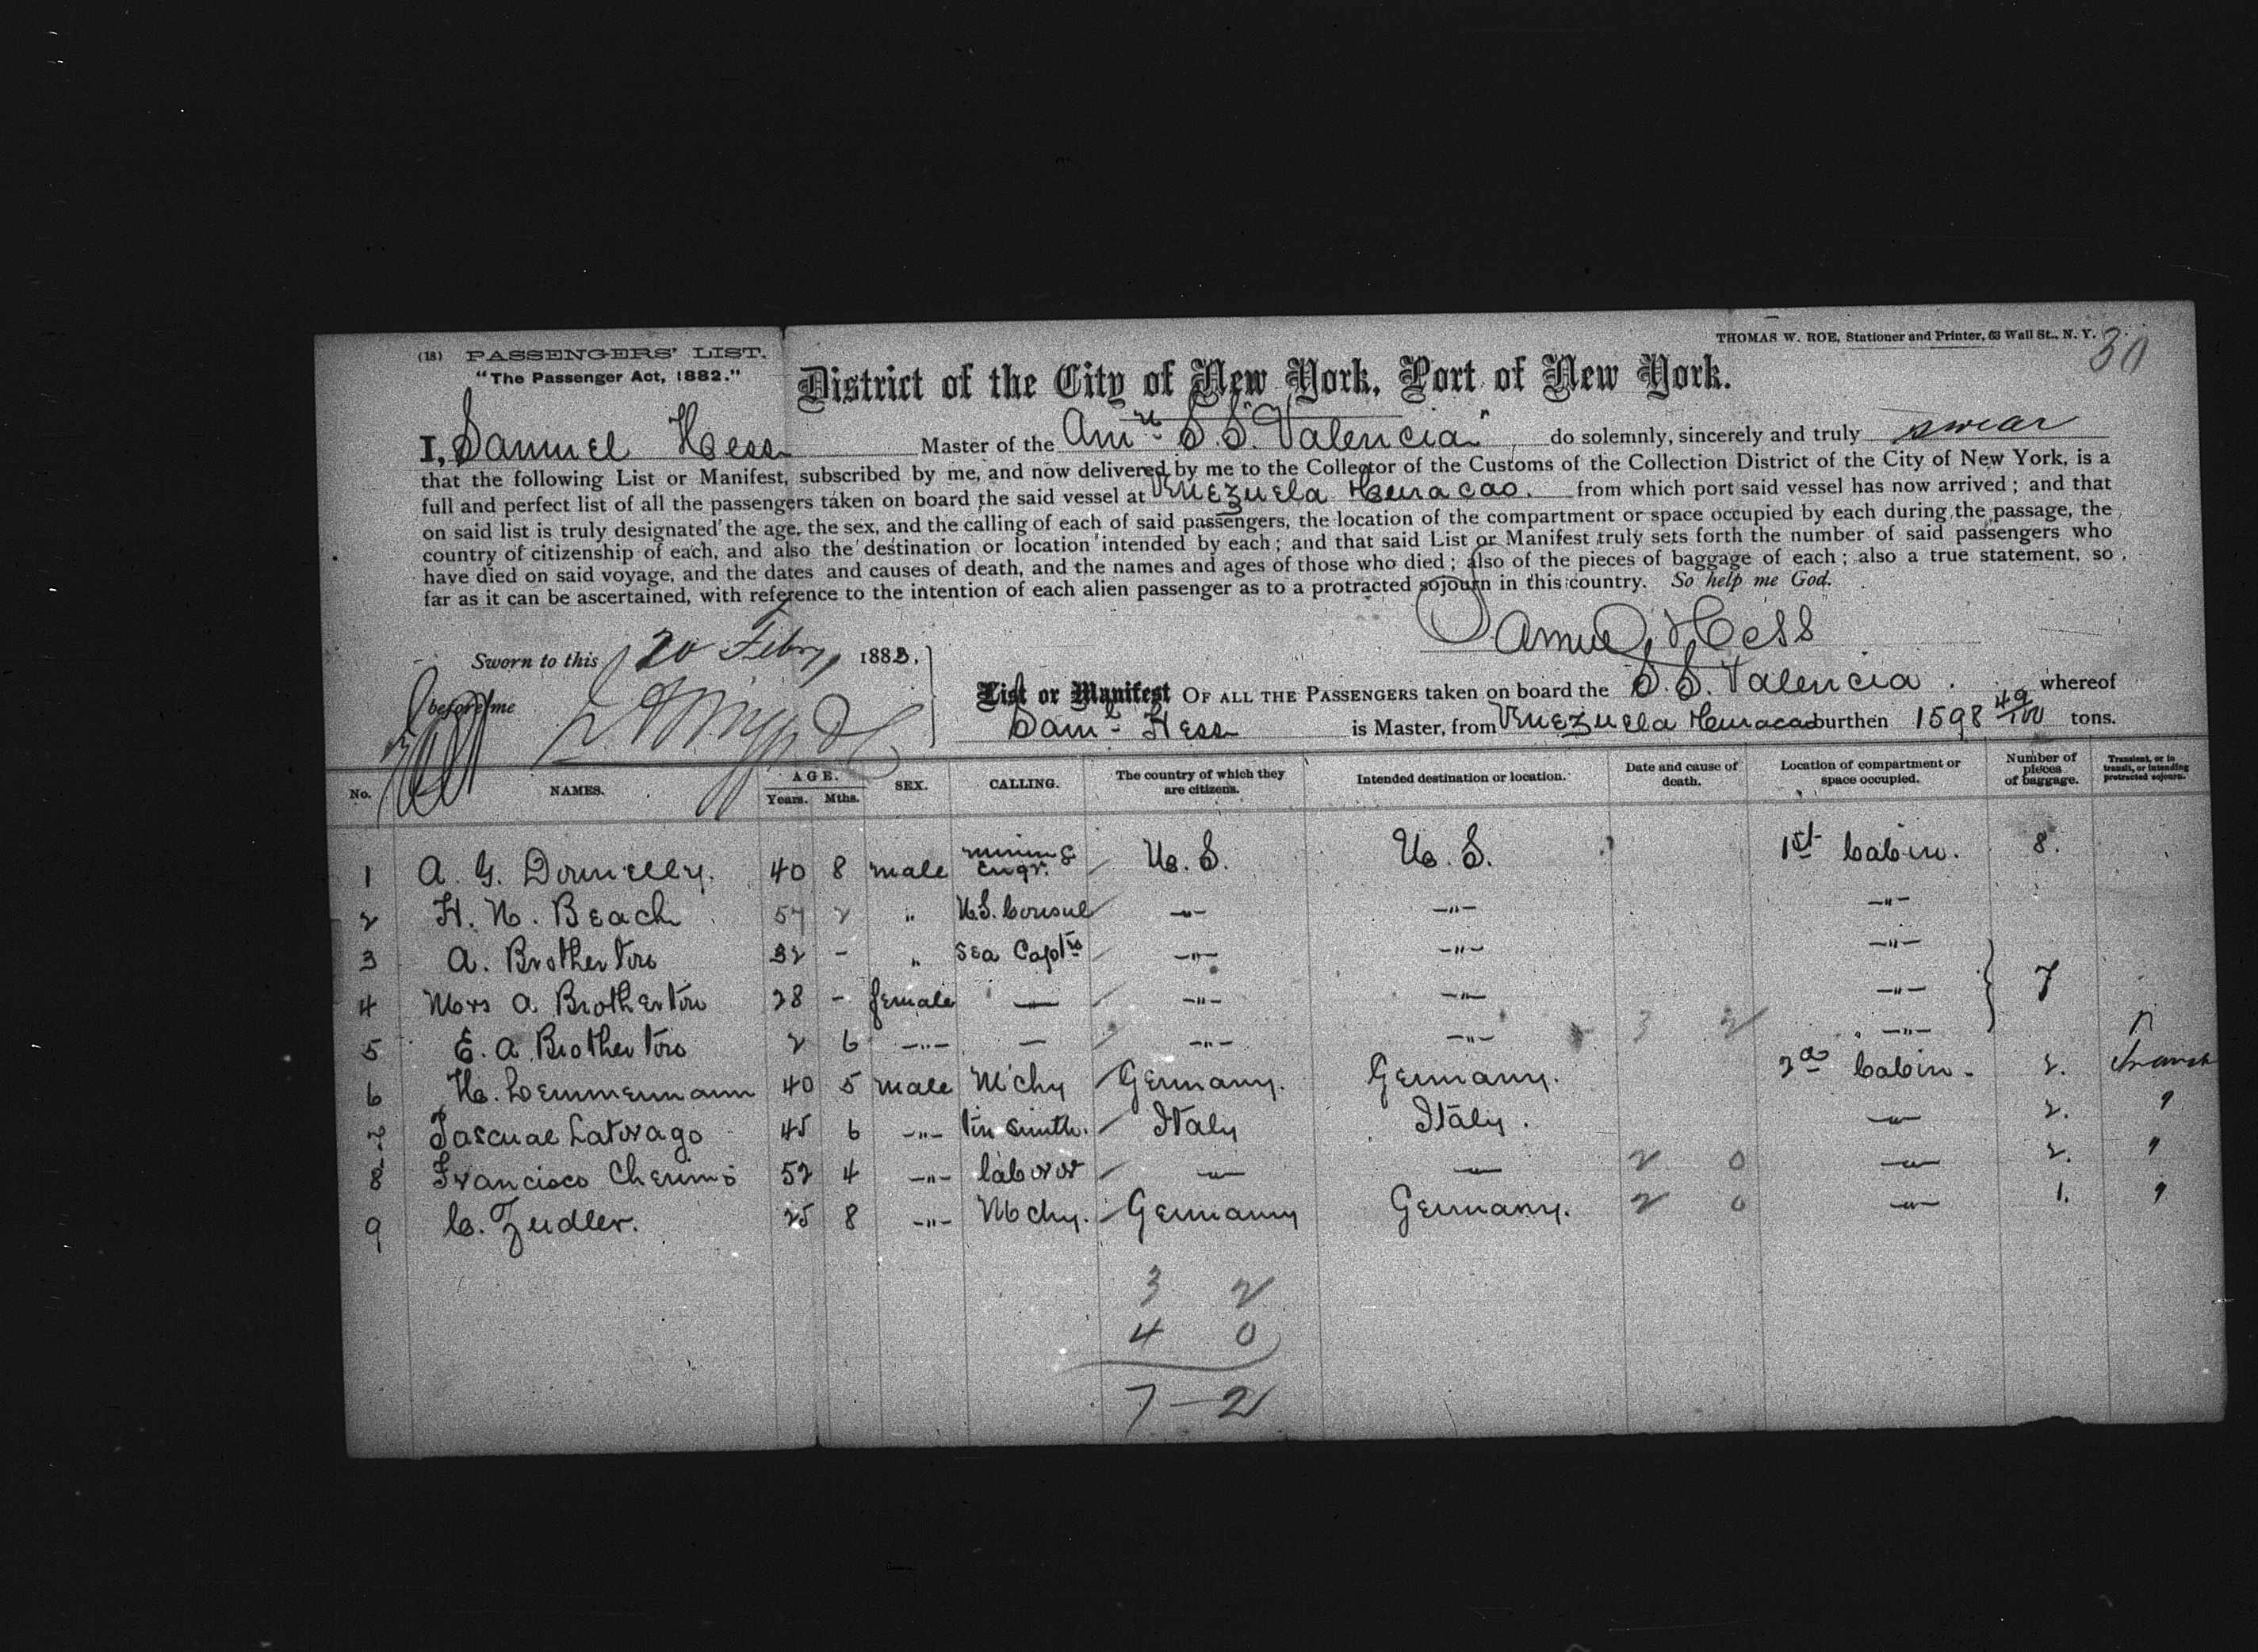 THOMAS W. ROE, Stationer and Printer, 63 Wall St., N. Y.
30
(18) PASSENGERS' LIST.
"The Passenger Act, 1882."
District of the City of New York, Port of New York.
I, Samuel Hess Master of the Amn S.S. "Valencia", do solemnly, sincerely and truly swear
that the following List or Manifest, subscribed by me, and now delivered by me to the Collector of the Customs of the Collection District of the City of New York, is a
full and perfect list of all the passengers taken on board the said vessel at Venezuela & Curacao. from which port said vessel has now arrived; and that
on said list is truly designated the age, the sex, and the calling of each of said passengers, the location of the compartment or space occupied by each during the passage, the
country of citizenship of each, and also the destination or location intended by each; and that said List or Manifest truly sets forth the number of said passengers who
have died on said voyage, and the dates and causes of death, and the names and ages of those who died; also of the pieces of baggage of each; also a true statement, so
far as it can be ascertained, with reference to the intention of each alien passenger as to a protracted sojourn in this country. So help me God.
Samuel Hess
Sworn to this 20 Febry 1883.
before me
List or Manifest OF ALL THE PASSENGERS taken on board the S.S. Valencia. whereof
Saml Hess is Master, from Venezuela & Curacao burthen 1598 49/100 tons.
No. NAMES. AGE. Years. Mths. SEX. CALLING. The country of which they are citizens. Intended destination or location. Date and cause of death. Location of compartment or space occupied. Number of pieces of baggage. Transient, or in transit, or intending protracted sojourn.
1 A. G. Donnelly. 40 8 male mining Engr. U. S. U. S. 1st Cabin. 8.
2 H. N. Beach 57 2 " U.S. Consul —"— —"— —"—
3 A. Brotherton 32 - " Sea Captn —"— —"— —"—
4 Mrs A Brotherton 28 - female — —"— —"— —"— 7
5 E. A Brotherton 2 6 —"— — —"— —"— 3 2 —"—
6 H. Lemmermann 40 5 male Mchy Germany. Germany. 2d Cabin. 2. transit
7 Pascual Latorago 45 6 —"— tin smith. Italy Italy. —"— 2. "
8 Francisco Cherino 52 4 —"— labor or —"— —"— 2 0 —"— 2. "
9 C. Zudler. 25 8 —"— Mchy. Germany Germany. 2 0 —"— 1. "
3 2
4 0
7 — 2